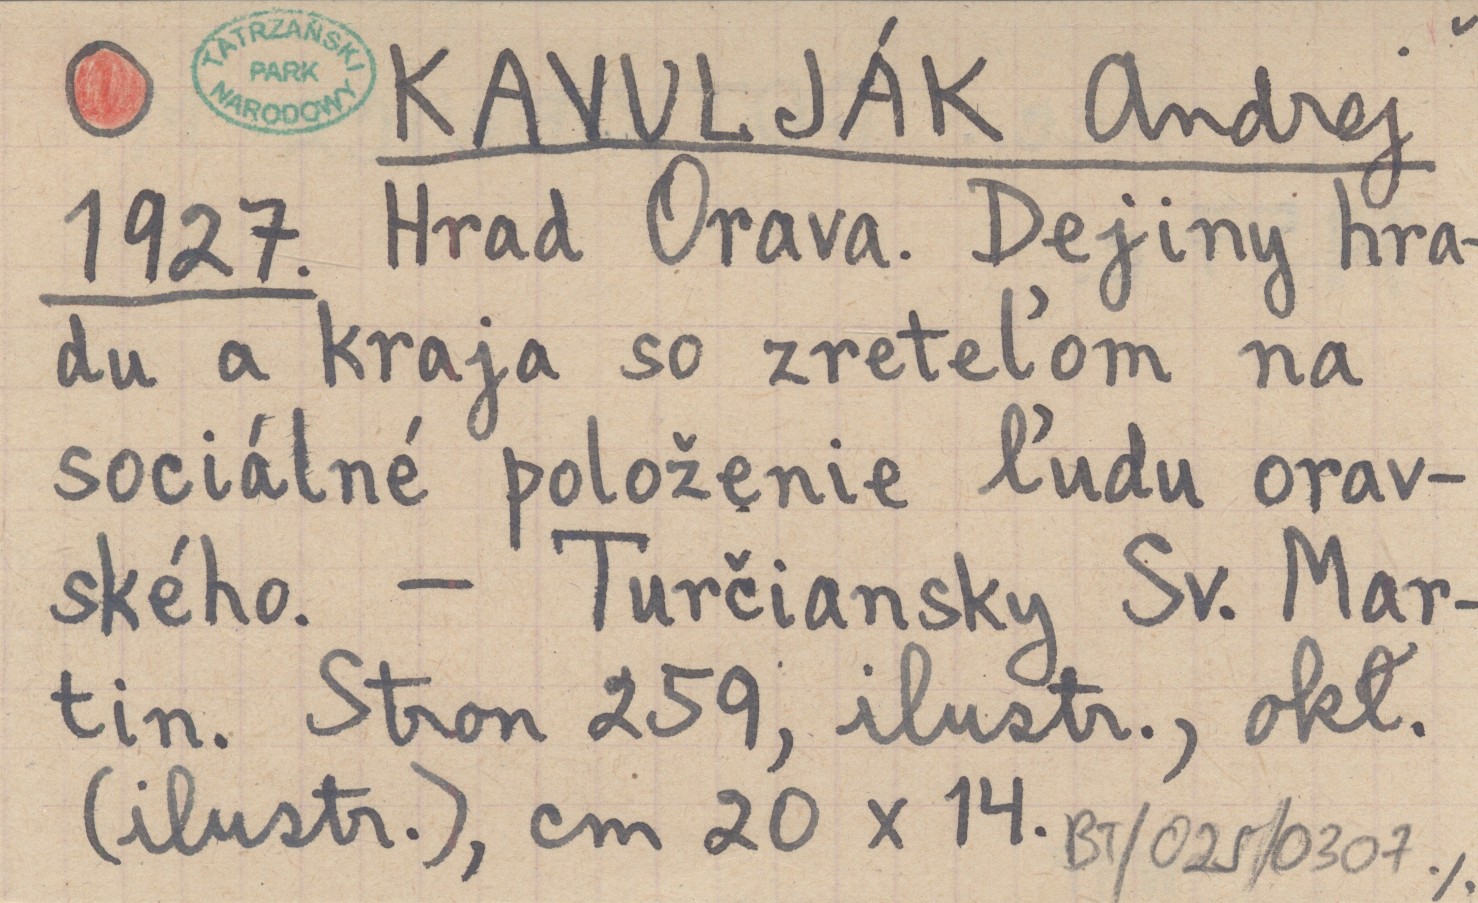 TATRZAŃSKI
PARK
NARODOWY
KAVULJÁK Andrej
1927. Hrad Orava. Dejiny hra-
du a kraja so zreteľom na
sociálné položenie ľudu orav-
ského. — Turčiansky Sv. Mar-
tin. Stron 259, ilustr., okł.
(ilustr.), cm 20 x 14.
BT/025/0307 ./.